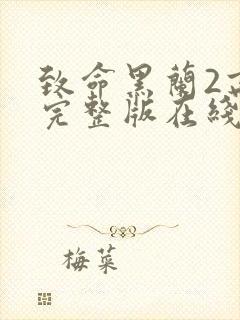 致命黑蘭2
完整版在綫
梅菜